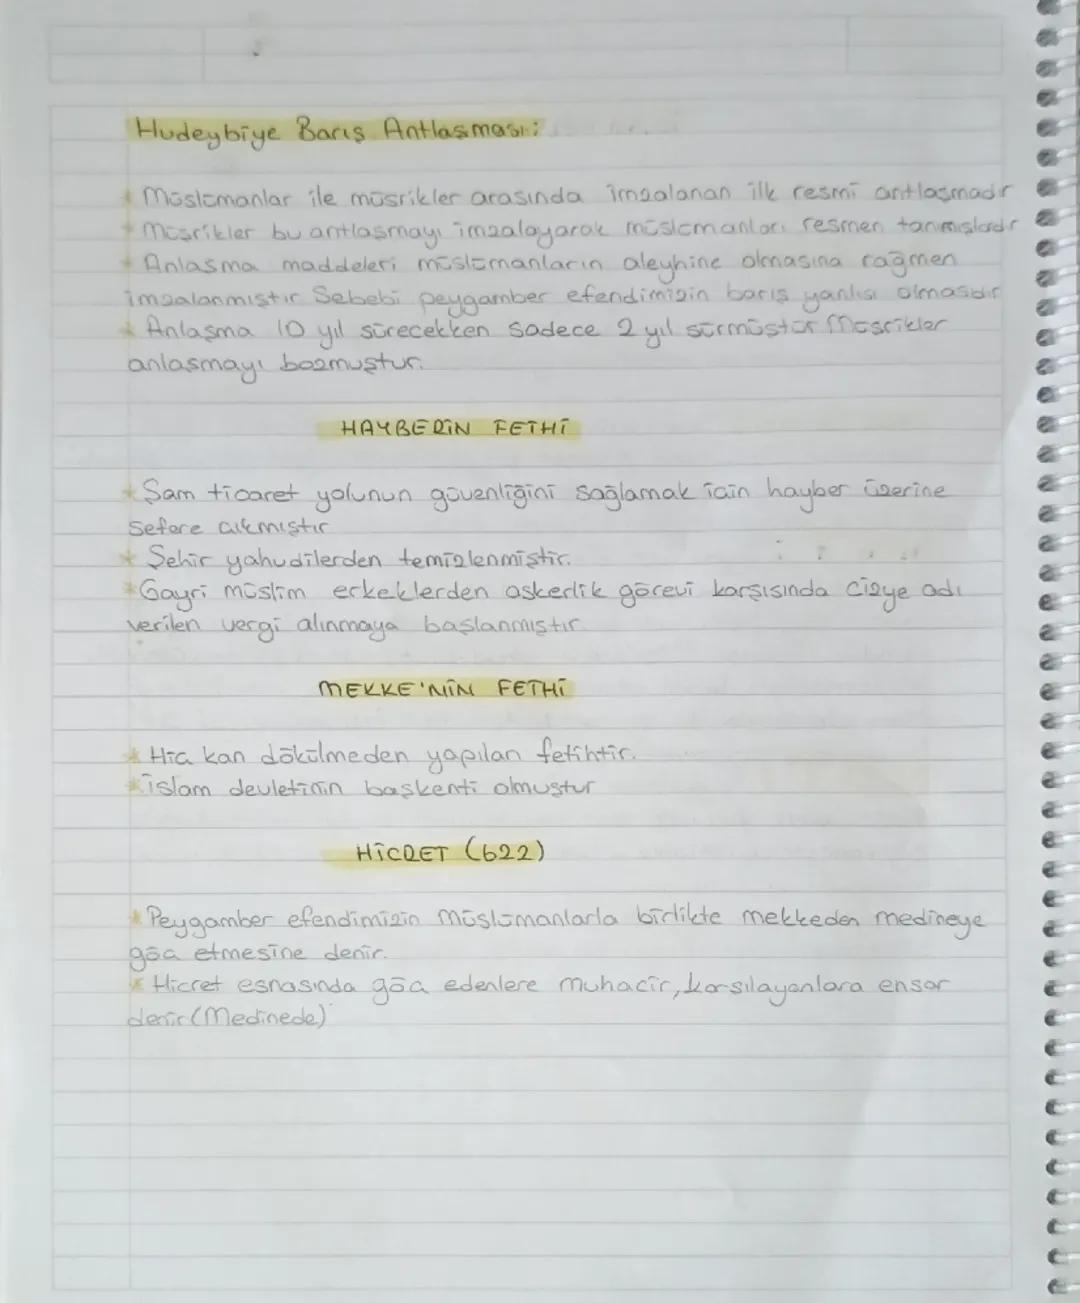 Hudeybiye Barış Antlaşması:
* Müslümanlar ile müşrikler arasında imzalanan ilk resmi antlaşmadır
* Müşrikler bu antlaşmayı imzalayarak müslümanları resmen tanımışlardır
* Anlaşma maddeleri müslümanların aleyhine olmasına rağmen
imzalanmıştır Sebebi peygamber efendimizin barış yanlısı olmasıdır
* Anlaşma 10 yıl sürecekken sadece 2 yıl sürmüştür Müşrikler
anlaşmayı bozmuştur.
HAYBERİN FETHİ
* Şam ticaret yolunun güvenliğini sağlamak için hayber üzerine
sefere çıkmıştır
* Şehir yahudilerden temizlenmiştir.
* Gayri müslim erkeklerden askerlik görevi karşısında cizye adı
verilen vergi alınmaya başlanmıştır.
MEKKE'NİN FETHİ
* Hiç kan dökülmeden yapılan fetihtir.
* İslam devletinin başkenti olmuştur
HİCRET (622)
* Peygamber efendimizin Müslümanlarla birlikte mekkeden medineye
göç etmesine denir.
* Hicret esnasında göç edenlere muhacir, karşılayanlara ensar
denir (Medinede)